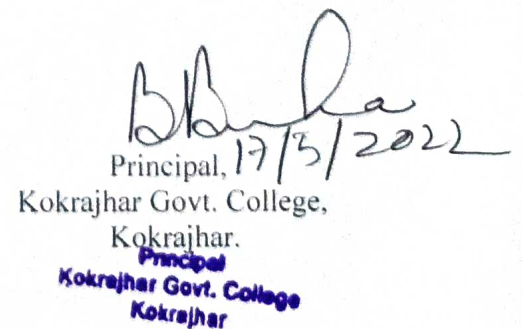 Principal, 17/5/2022
Kokrajhar Govt. College,
Kokrajhar.
Principal
Kokrajhar Govt. College
Kokrajhar